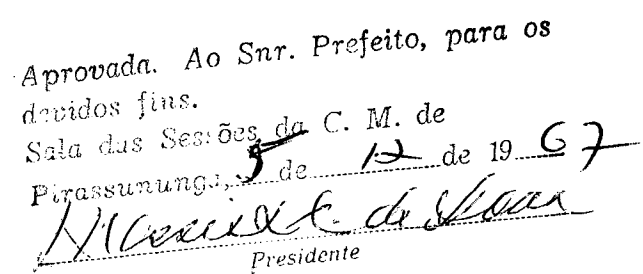 Aprovada. Ao Snr. Prefeito, para os
devidos fins.
Sala das Sessões da C. M. de
Pirassununga, 5 de 12 de 19 67
Presidente